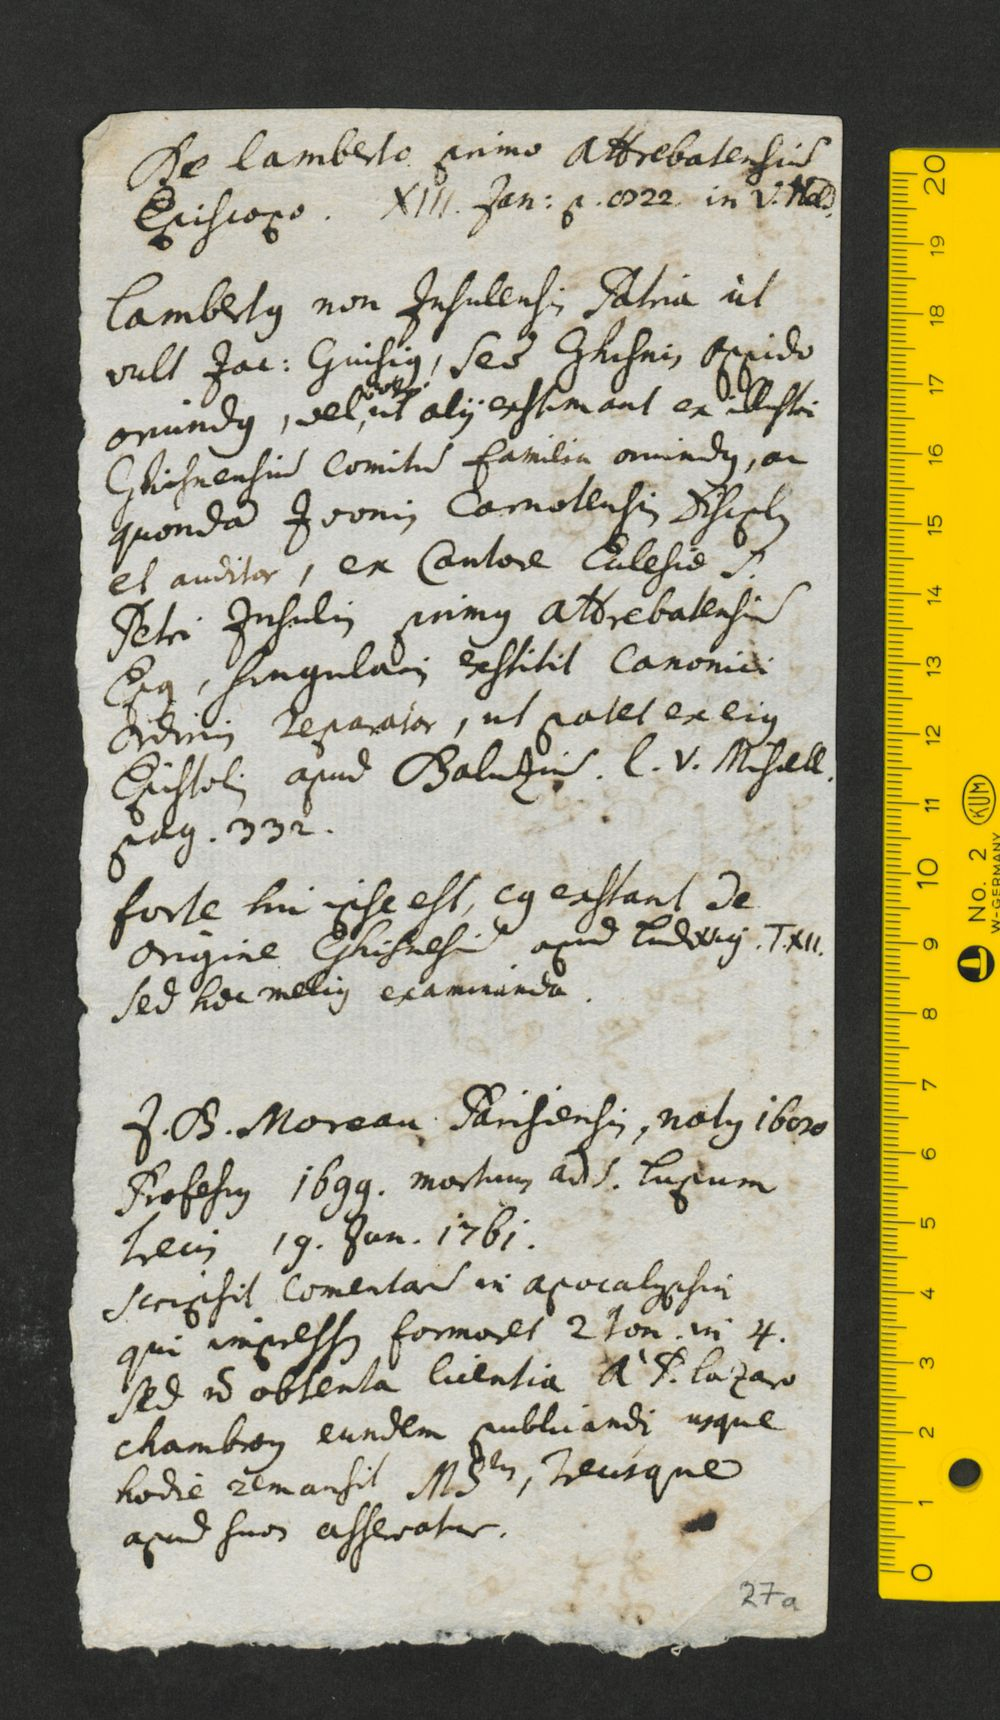 De Lamberto primo Attrebatensiu
Episcopo. XIII. Jan: p. 822 in V.
Lambertq non Insulensis Patria ut
vult Jac: Guisiq, sed Ghisnis oppido
oriundq, vel, ut alij exstimant ex illustri
Ghisnensiu Comitu familia oriundq, ac
quonda Ivonis Carnotensis Discplq
et auditor, ex Cantore Eclesie S.
Petri Insulis primq Attrebatensiu
Epq, singularis exstitit Canonici
Ordinis reparator, ut patet ex eiq
Epistolis apud Baluziu. l. V. Miscell.
pag. 332.
forte hic ipse est, cq exstant de
origine Ghisnesiu apud Ludwig. T. XII.
sed hoc meliq examinanda.
J. B. Moreau Parisiensis, natq
Professq 1699. mortuus ad S. Lupum
Trecis 19. Jun. 1761.
scripsit Comentariu in apocalypsin
qui impressq formaret 2 Tom. in 4.
sed no obtenta licentia à P. Lazaro
chambroy eundem publicandi usque
hodie remansit MStus, Trecisque
apud suos asservatur.
27a
20
19
18
17
16
15
14
13
12
11
10
9
8
7
6
5
4
3
2
1
0
KUM
No. 2
W-GERMANY